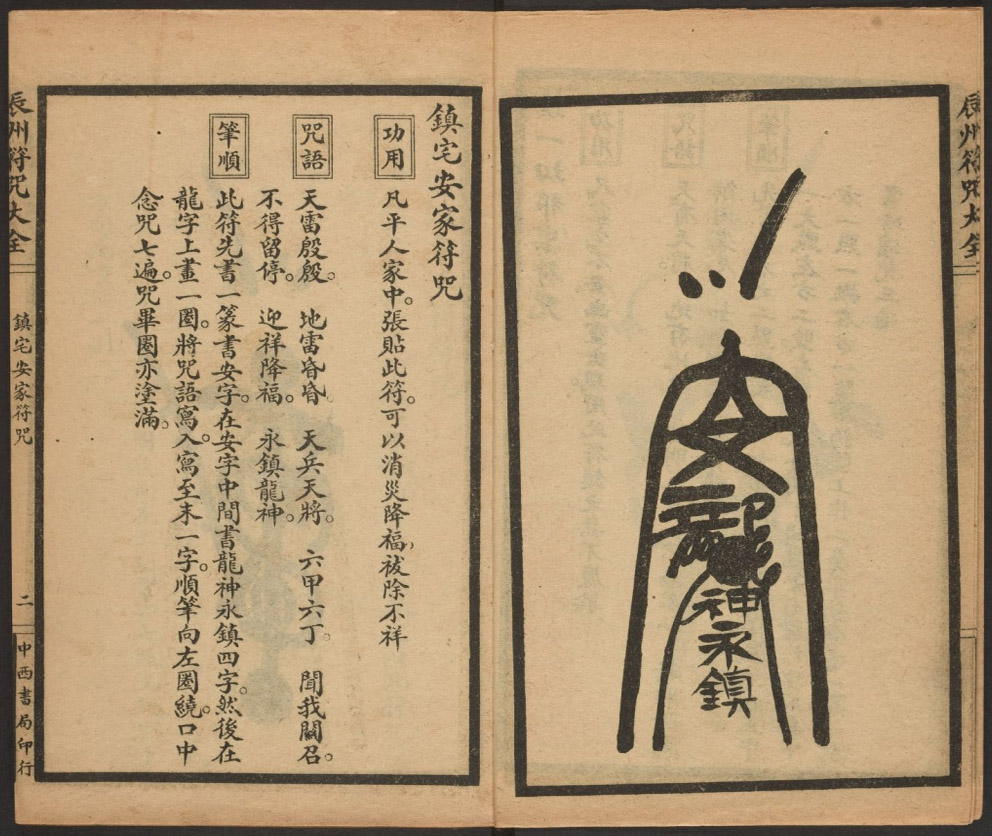 辰州符咒大全
安
龍
神永鎮
鎮宅安家符咒
功用
凡平人家中。張貼此符。可以消災降福，祓除不祥
咒語
天雷殷殷。 地雷昏昏 天兵天將。 六甲六丁。 聞我關召。
不得留停。 迎祥降福。 永鎮龍神。
筆順
此符先書一篆書安字。在安字中間書龍神永鎮四字。然後在
龍字上畫一圈。將咒語寫入。寫至末一字。順筆向左圈繞。口中
念咒七遍。咒畢圈亦塗滿。
辰州符咒大全
鎮宅安家符咒
二
中西書局印行